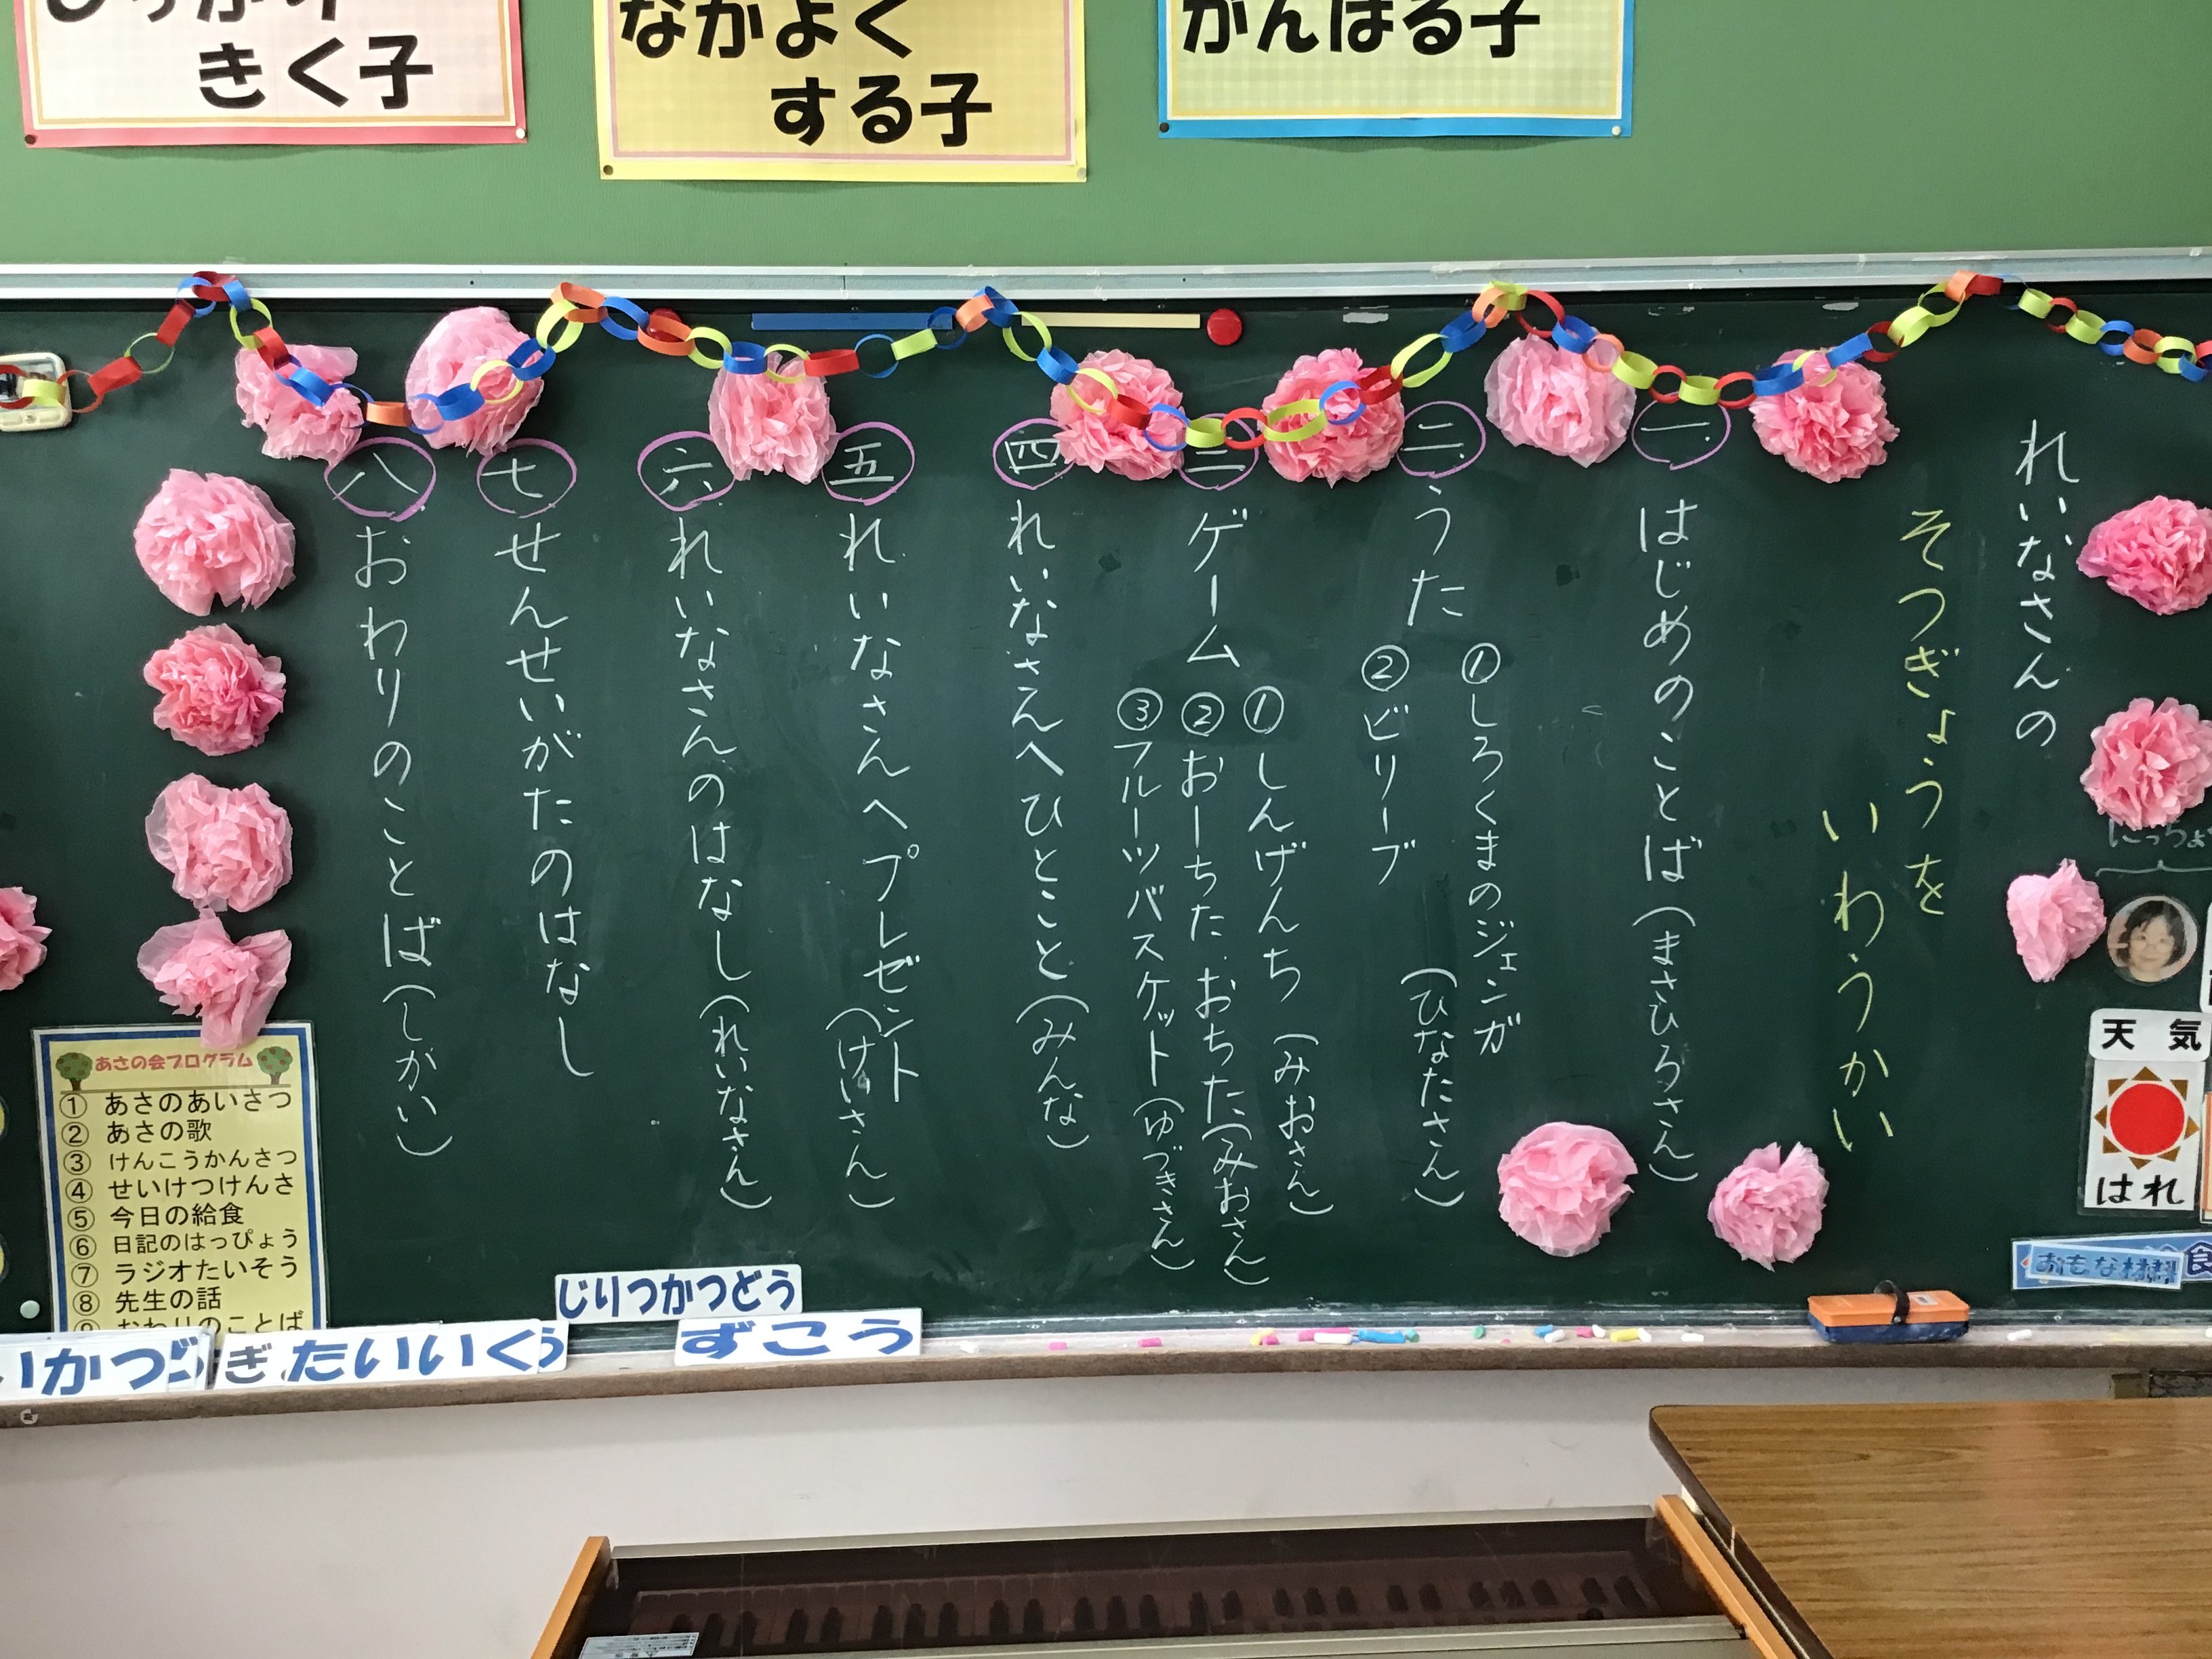 きく子
なかよく
する子
がんばる子
れいなさんの
そつぎょうを
いわうかい
一 はじめのことば(まさひろさん)
二 うた
①しろくまのジェンガ
②ビリーブ
(ひなたさん)
三 ゲーム
①しんげんち(みおさん)
②おーちた、おちた(みおさん)
③フルーツバスケット(ゆづきさん)
四 れいなさんへひとこと(みんな)
五 れいなさんへプレゼント
(けいさん)
六 れいなさんのはなし(れいなさん)
七 せんせいがたのはなし
八 おわりのことば(しがい)
にっちょ
天気
はれ
おもな材料
食
あさの会プログラム
① あさのあいさつ
② あさの歌
③ けんこうかんさつ
④ せいけつけんさ
⑤ 今日の給食
⑥ 日記のはっぴょう
⑦ ラジオたいそう
⑧ 先生の話
⑨ おわりのことば
じりつかつどう
いかつ
ぎ
たいいく
う
ずこう